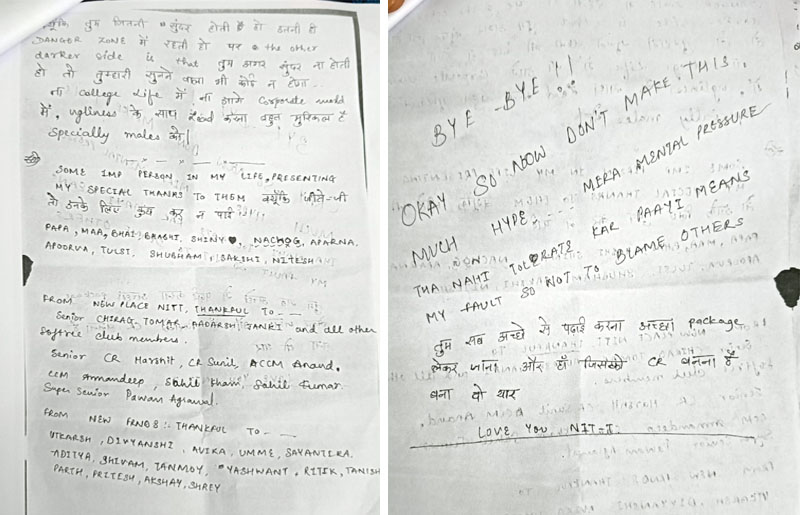 क्यूंकि तुम जितनी सुंदर होती हो उतनी ही
DANGER ZONE में रहती हो पर the other
darker side is that तुम अगर सुंदर ना होती
हो तो तुम्हारी सुनने वाला भी कोई न होगा...
ना college life में ना आगे corporate world
में, ugliness के साथ lead करना बहुत मुश्किल है
specially males को।
SOME IMP PERSON IN MY LIFE, PRESENTING
MY SPECIAL THANKS TO THEM क्यूंकि जीते-जी
तो उनके लिए कुछ कर न पाई !!!
PAPA, MAA, BHAI BHABHI, SHINY, NACHOG, APARNA,
APOORVA, TULSI, SHUBHAM, SAKSHI, NITESH
FROM NEW PLACE NITT, THANKFUL TO - - -
Senior CHIRAG TOMAR, AADARSH, JANKI and all other
club members.
Senior CR Harshit, CR Sunil, ACCM Anand,
CCM Amandeep, Sahil Khan, Sahil Kumar.
Super Senior Pawan Agrawal.
FROM NEW FRNDS :- THANKFUL TO - - -
UTKARSH, DIVYANSHI, AVIKA, UMME, SAYANTIKA,
ADITYA, SHIVAM, TANMOY, YASHWANT, RITIK, TANISH
PARTH, PRITESH, AKSHAY, SHREY
BYE -BYE !!
OKAY SO NOW DON'T MAKE THIS
MUCH HYPE... MERA MENTAL PRESSURE
THA NAHI TOLERATE KAR PAAYI MEANS
MY FAULT SO NOT TO BLAME OTHERS
तुम सब अच्छे से पढ़ाई करना अच्छा package
लेकर जाना और हाँ जिसको CR बनना है
बना दो यार
LOVE YOU, NIT-T.